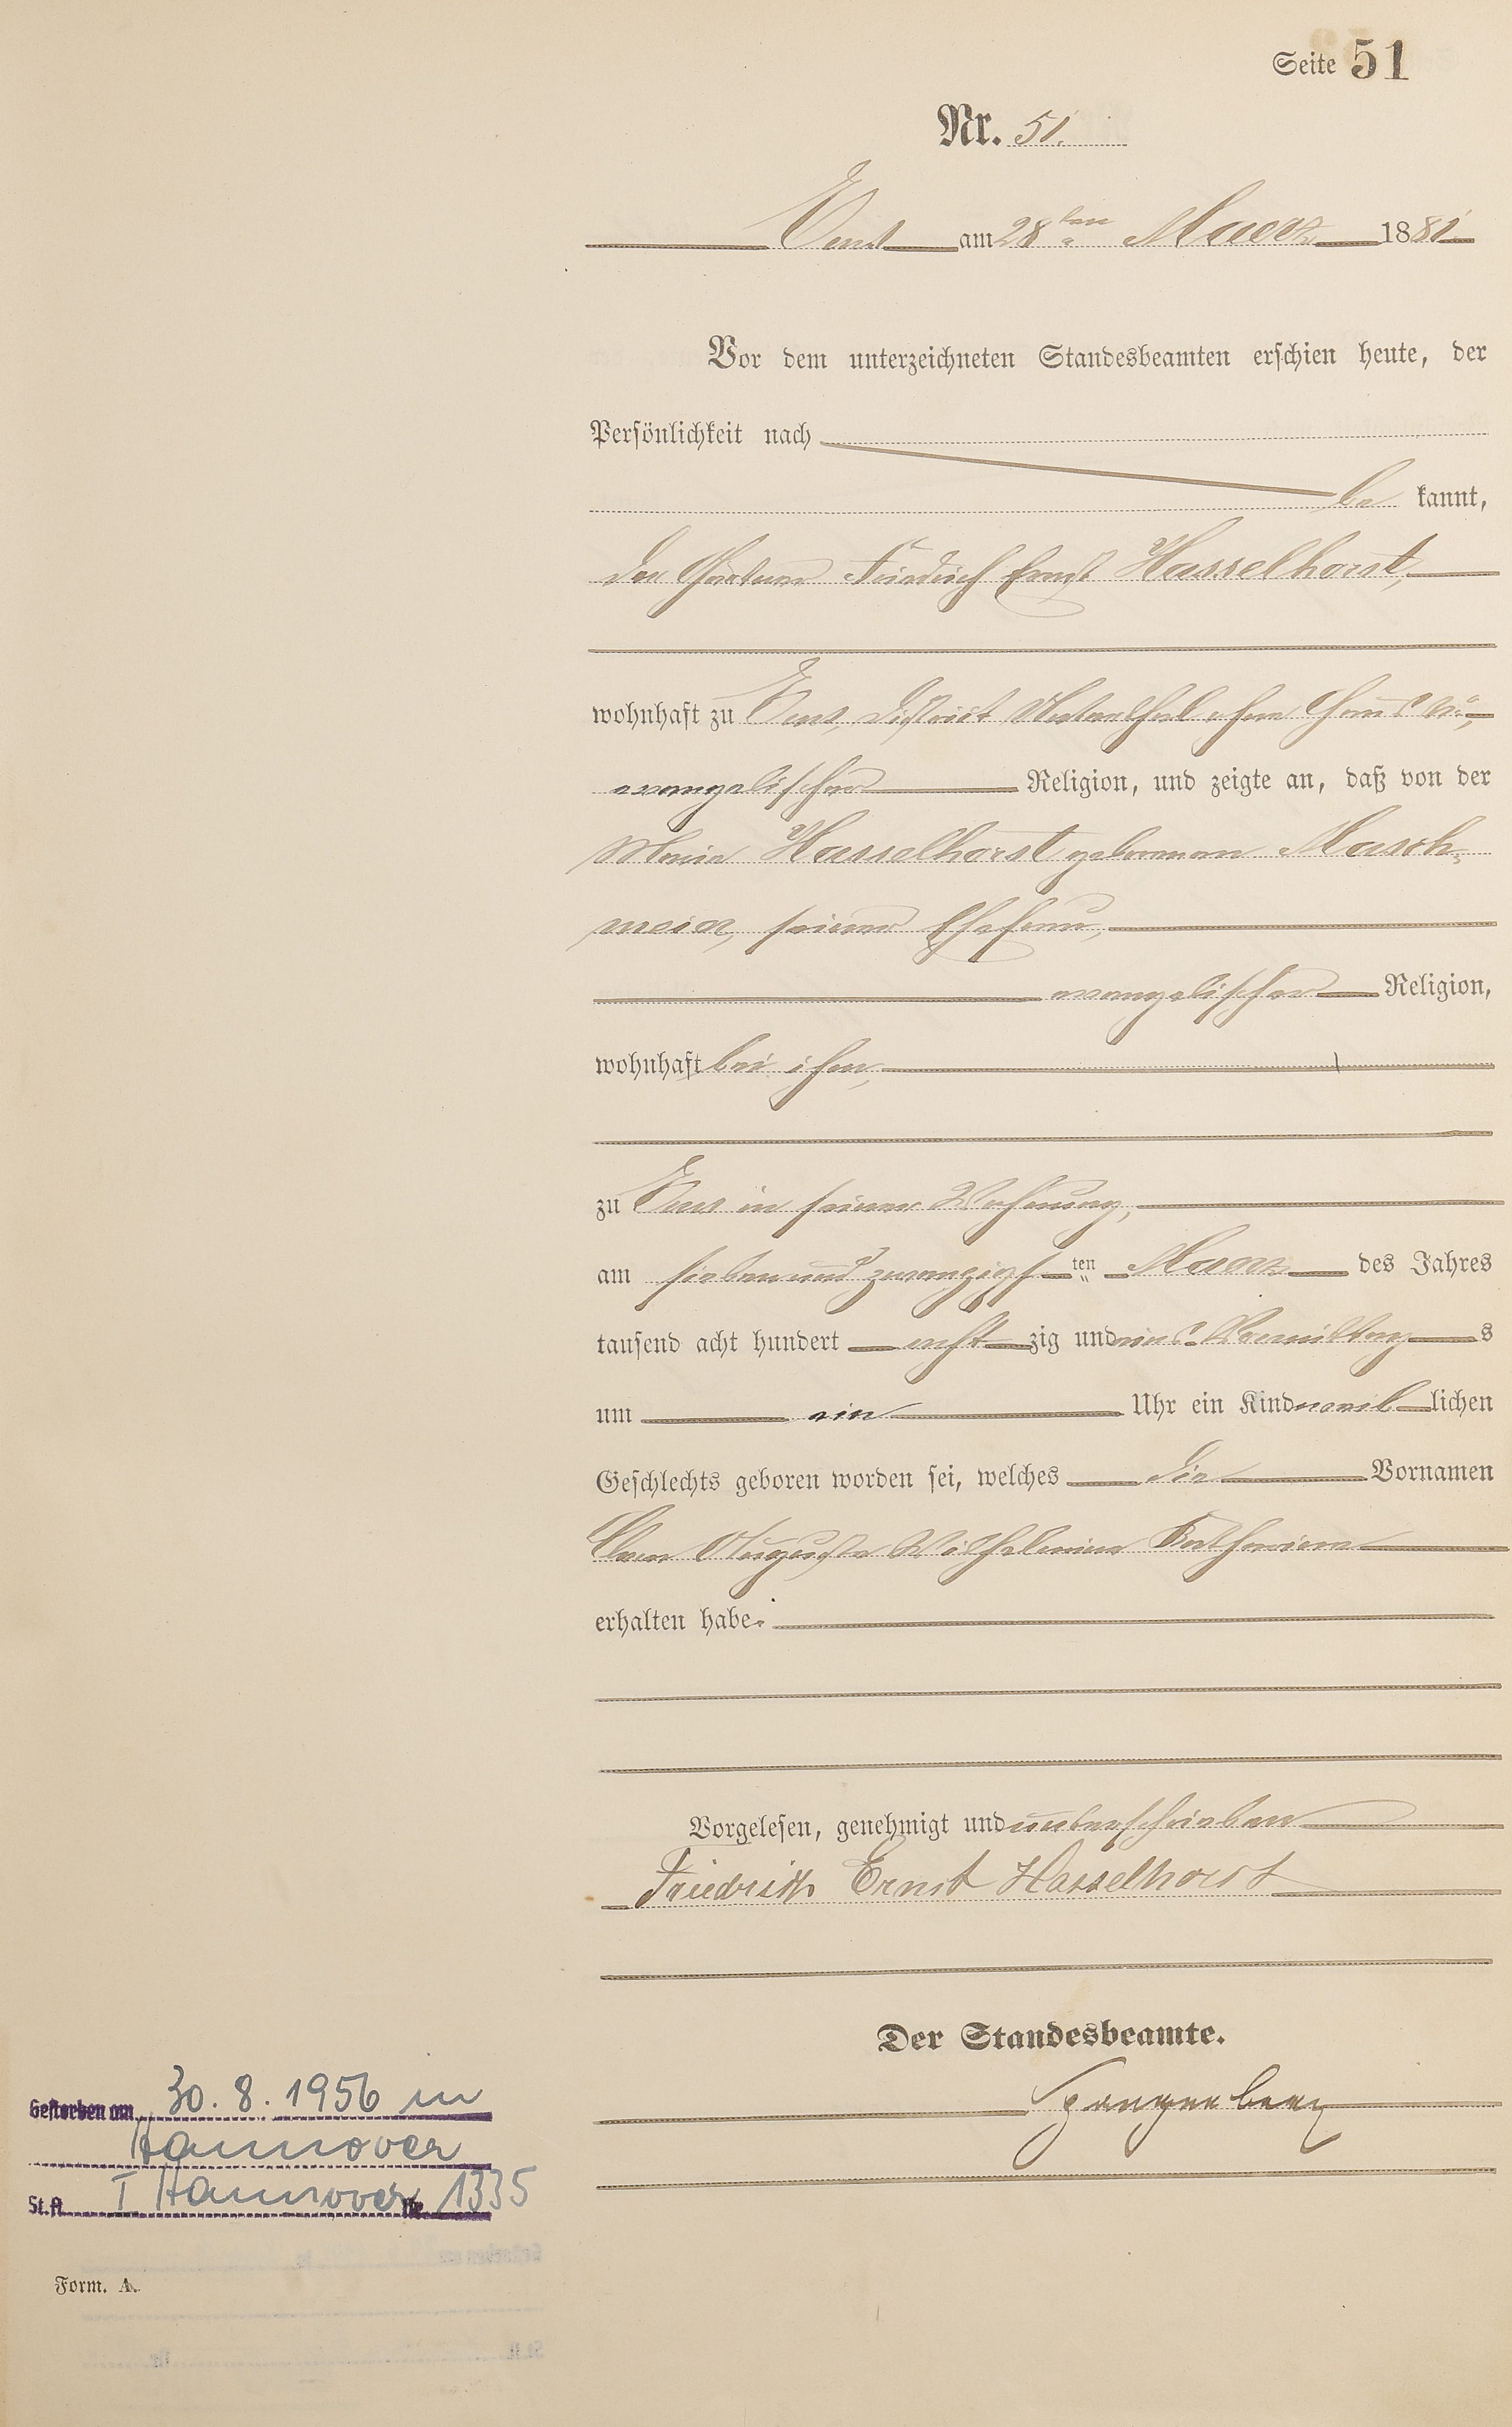 Seite 51
Nr. 51.
Ems am 28ten Maerz 1881
Vor dem unterzeichneten Standesbeamten erschien heute, der
Persönlichkeit nach
be kannt,
der Gärtner Friedrich Ernst Hasselhorst,
wohnhaft zu Ems, District ohne Haus No,
evangelischer Religion, und zeigte an, daß von der
Marie Hasselhorst geborenen Masch-
meier, seiner Ehefrau,
evangelischer Religion,
wohnhaft bei ihm,
zu Ems in seiner Wohnung,
am sieben und zwanzigsten Maerz des Jahres
tausend acht hundert achtzig und eins Vormittags
um ein Uhr ein Kind weiblichen
Geschlechts geboren worden sei, welches die Vornamen
Auguste Wilhelmine Katharina
erhalten habe.
Vorgelesen, genehmigt und unterschrieben
Friedrich Ernst Hasselhorst
Der Standesbeamte.
Spangenberg
Gestorben am 30.8.1956 in
Hannover
St.A. I Hannover Nr. 1335
Form. A.